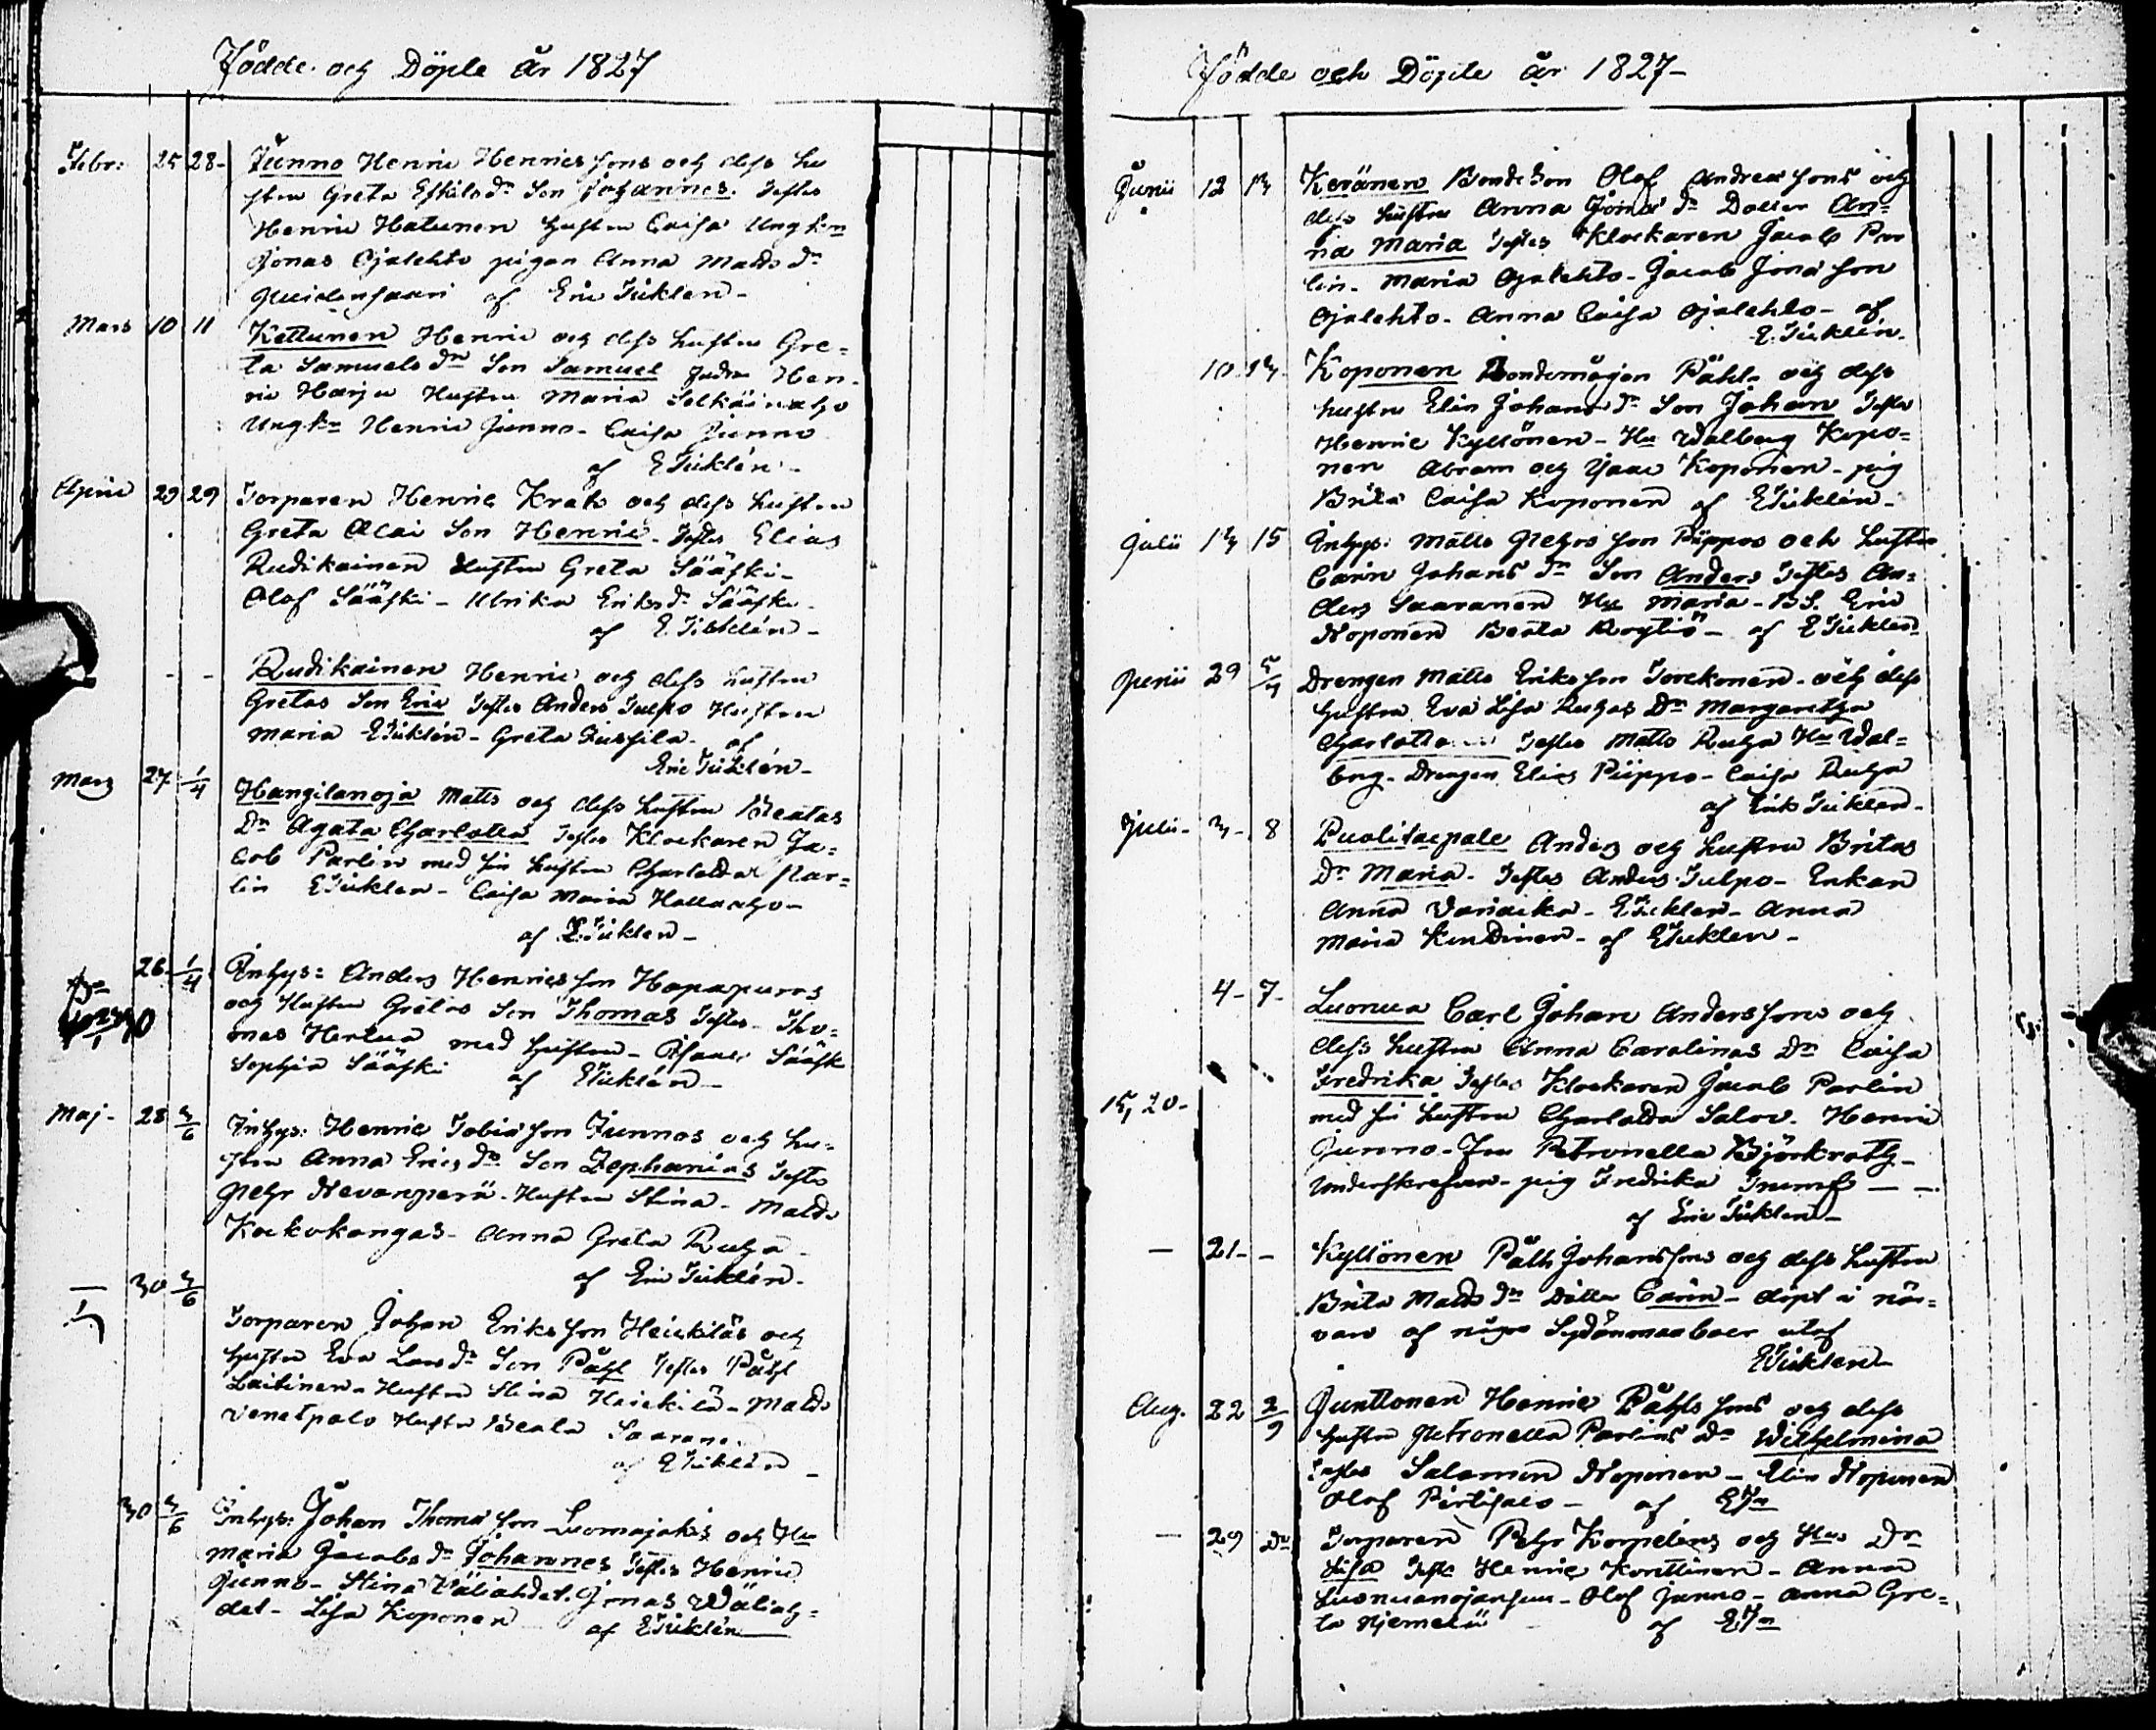 Födde och Döpte år 1827
Febr: 25 28- Junno Henric Henrics sons och dess hu
stru Greta Eskilsdr Son Johannes. Testes
Henric Hatunen hustru Caisa Ungkn
Jonas Ojalehto pigan Anna Mattsdr
af Eric Ticklén-
Mars 10 11 Kettunen Henric och dess hustru Gre=
ta Samuelsdr Son Samuel Hen-
ric Harju Hustru Maria
Ungkn Henric Junno- Caisa Junno
af E Ticklén-
April 29 29 Torparen Henric och dess hustru
Greta Olai Son Henric- Testes Elias
Rudikainen Hustru Greta Sääski-
Olof Sääski- Ulrika Eriksdr Sääski-
af E. Ticklén-
- - Rudikainen Henric och dess hustru
Gretas Son Eric Testes Anders Tulpo Hustru
Maria E Ticklén- Greta af
Eric Ticklén-
Mars 27 1/4 Hangilanoja Matts och dess hustru Beatas
Dr Agata Charlotta Testes Klockaren Ja=
cob Parlin med sin hustru Charlotta Par=
lin E Ticklen- Caisa Maria
af E. Ticklen-
26 1/4 Inhys: Anders Henricsson
och Hustru Gretas Son Thomas Testes- Tho=
mas Hertua med hustru- Sääsk
Sophia Sääski af E Ticklén-
Maj- 28 3/6 Inhys: Henric Tobiasson Junnos och hu=
stru Anna Ericsdr Son Zephanias Testes
Pehr Nevanperä- Hustru Stina- Matts
Kockokangas- Anna Greta Ruha-
af Eric Ticklén-
— 30 3/6
Torparen Johan Eriksson Heickiläs och
hustru Eva Larsdr Son Påhl Testes Påhl
Laitinen- Hustru Stina Heickilä- Matts
Venetpalo Hustru Beata
af E Ticklén-
30 3/6 Inhys: Johan Thomasson Luomajokis och Hu
Maria Jacobsdr Johannes Testes Henric
Junno- Stina Väliahdet. Jonas Wäliah=
det- Lisa Koponen af E Ticklén
Födde och Döpte år 1827-
Junii 12 13 Keränen Bondeson Olof Andreas sons och
dess hustru Anna Jonasdr Dotter An=
na Maria Testes Klockaren Jacob Par
lin- Maria Ojalehto- Jacob Jonasson
Ojalehto- Anna Caisa Ojalehto- af
E. Ticklén.
10 13- Koponen Bondemågen Påhl- och dess
hustru Elin Johansdr Son Johan Testes
Henric Kyllönen- Hu Walborg Kopo=
nen Abram och Isaac Koponen- pig
Brita Caisa Koponen af E Ticklén-
Julii 13 15 Inhys: Matts Pehrsson Piippos och hustru
Carin Johansdr Son Anders Testes An=
ders Saaranen Hu Maria- B S. Eric
Koponen Beata af E Ticklén
Junii 29 5/4 Drengen Matts Eriksson och dess
hustru Eva Lisa Ruhas Dr Margaretha
Charlotta Testes Matts Ruha Hu Wal=
borg- Drengen Elias Piippo- Caisa Ruha
af Erik Ticklen-
Julii- 3- 8 Puolitaepale Anders och hustru Britas
Dr Maria- Testes Anders Tulpo- Enkan
Anna E Ticklen- Anna
Maria Kindinen- af E Ticklen-
4- 7- Luonua Carl Johan Anderssons och
dess hustru Anna Carolinas Dr Caisa
Fredrika Testes Klockaren Jacob Parlin
15, 20- med sin hustru Charlotta Henric
Junno- Fru Petronella Björkroth-
Underskrefven- pig Fredrika
af Eric Ticklén-
— 21- - Kyllönen Påhl Johanssons och dess hustru
Brita Mattsdr Dotter Carin- döpt i när=
varo af några boer utaf
E Ticklen-
Aug. 22 2/9 Junttonen Henric Påhls sons och dess
hustru Petronella Parlins Dr Wilhelmina
Testes Salomon Koponen- Elin Koponen
Olof af E Tn
— 29 Do Torparen Pehr Korpelens och Hus Dr
Lisa Testes Henric Konttinen- Anna
Olof Junno- Anna Gre=
ta Njemelä af E Tn